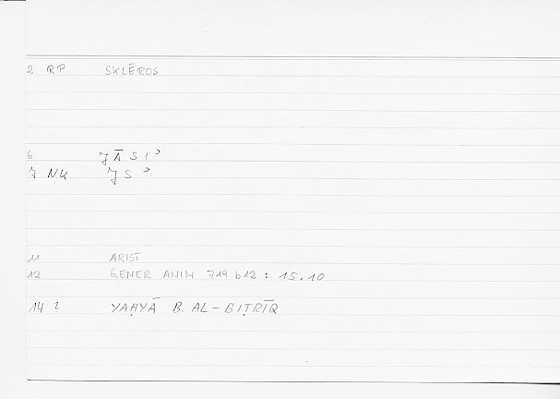 2 QP SKLĒROS
6 J Ā S I ʾ
7 NK J S ʾ
11 ARIST
12 GENER ANIM 719 b12 : 15.10
14 2 YAḤYĀ B. AL-BIṬRĪQ